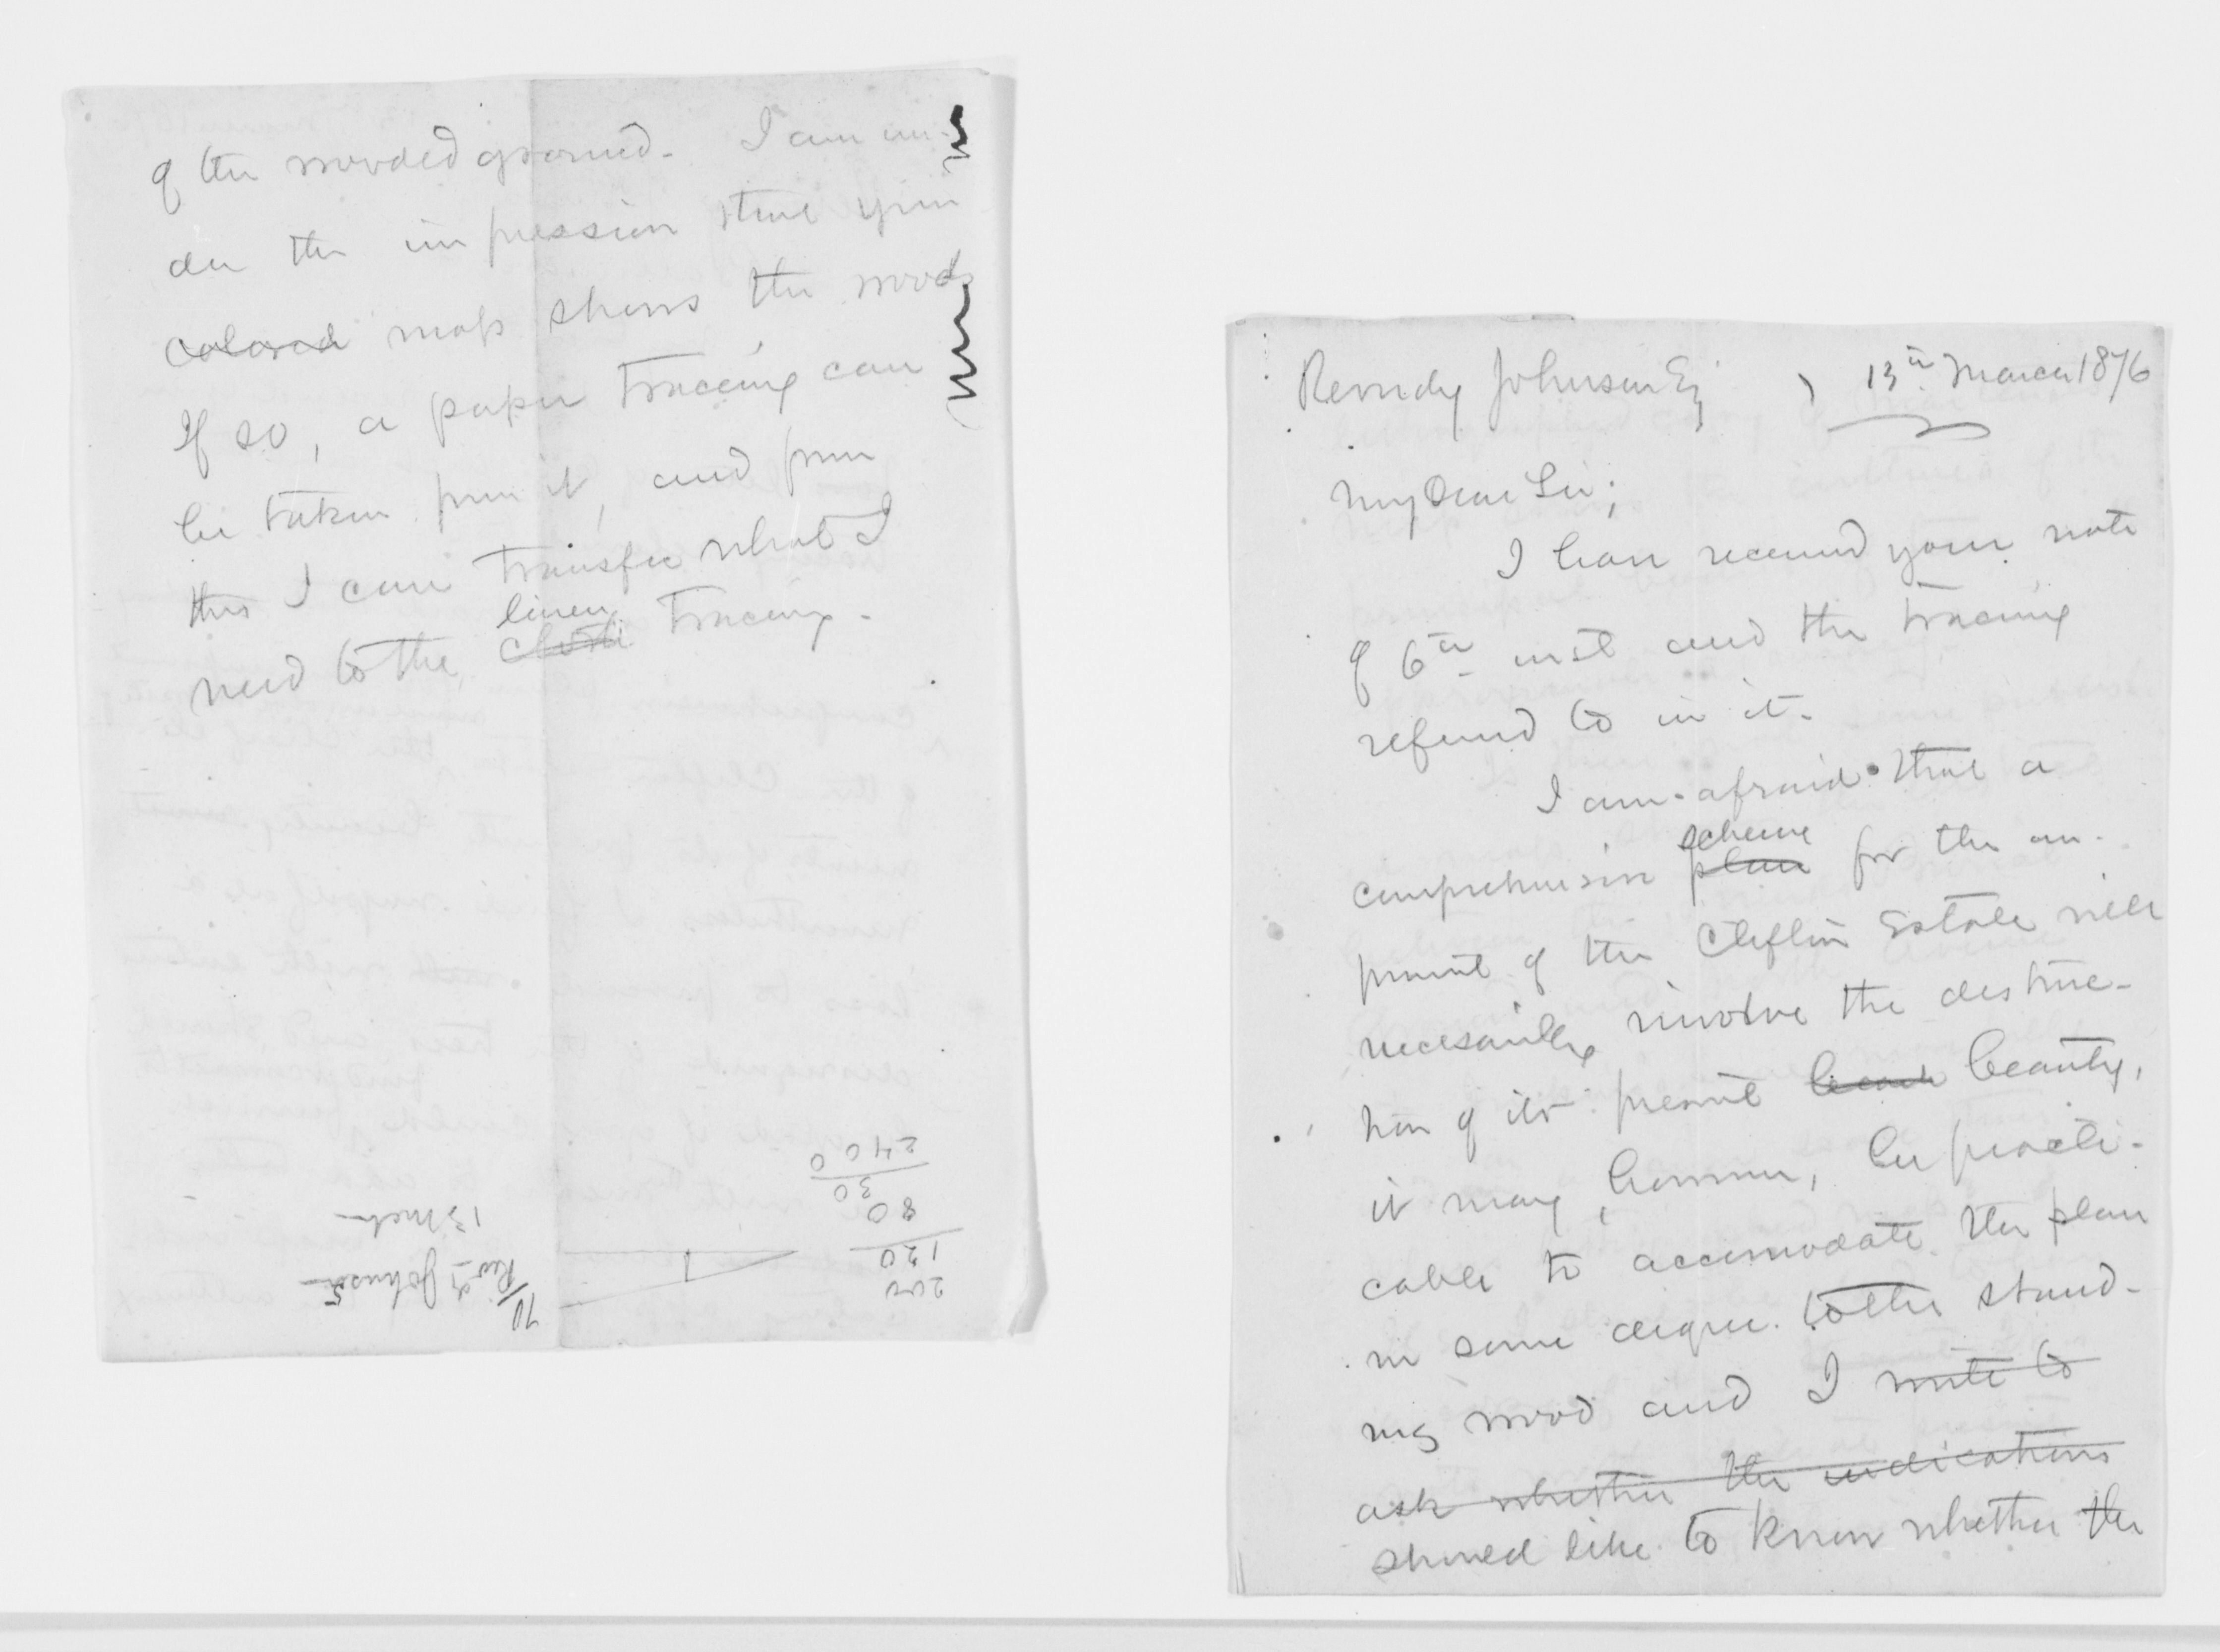 of the wooded ground. I am un-
der the impression that your
colored map shows the woods
If so, a paper tracing can
be taken from it, and from
this I can transfer what I
linen
need to the cloth tracing.
2400
30
80
120
200
70
Revdy Johnson
13 March
Reverdy Johnson Esq
13th March 1876
My Dear Sir;
I have received your note
of 6th inst and the tracing
referred to in it.
I am afraid that a
scheme
comprehensive plan for the im-
provmt of the Clifton Estate will
necessarily involve the destruc-
tion of its present beau beauty,
it may, however, be practi-
cable to accomodate the plan
in some degree to the stand-
ing wood and I write to
ask whether the indications
should like to know whether the